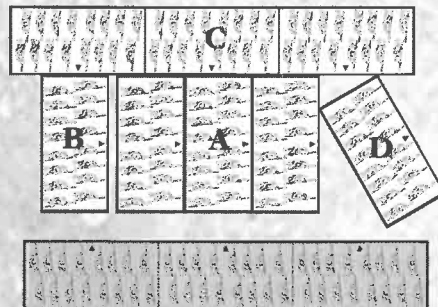 C
B A D